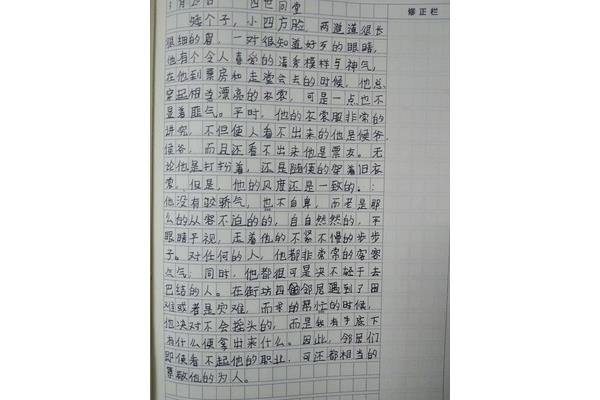 月 日 四世同堂
修正栏
矮个子，小四方脸，两道道很长
很细的眉，一对很知道好歹的眼睛，
他有个令人喜爱的清秀模样与神气，
在他到票房和走堂会去的时候，他总
穿起相当漂亮的衣零，可是一点也不
显着匪气。平时，他的衣零服非常的
讲究，不但使人看不出来的他是候爷，
候爷，而且还看不出来他是票友。无
论他是打扮着，还是随便的穿着旧衣
零，但是，他的风度还是一致的。：
他没有骄气，也不自卑，而老是那
么的从容不迫的的，自自然然的，平
眼睛平视，走着他的不紧不慢的步步
子。对任何的人，他都非常常的客客
气气；同时，他都很可是决不轻于去
巴结的人。在街坊四邻邻尼遇到了困
难或者是灾难，而求的帮忙的时候，
他决对不会摇头的，而是手底下
有什么便拿出来什么。因此，邻居们
即使看不起他的职业，可还都相当的
尊敬他的为人。